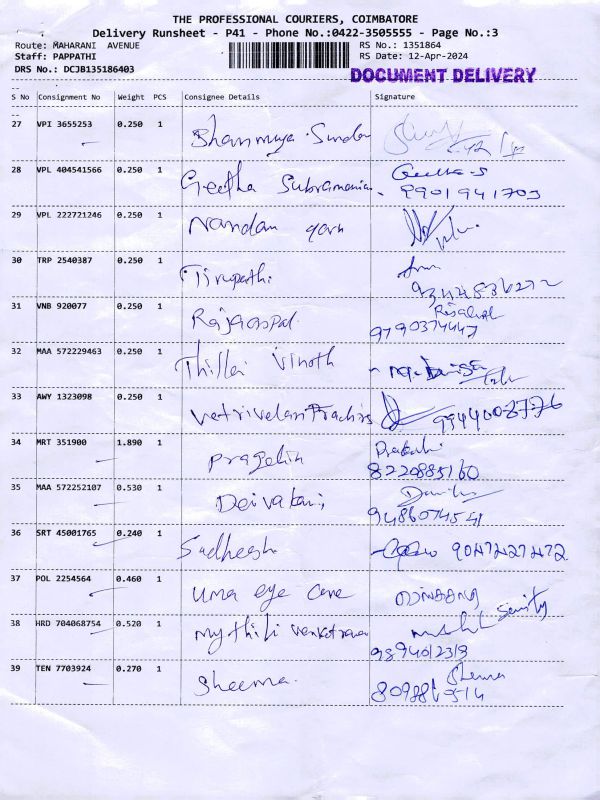 THE PROFESSIONAL COURIERS, COIMBATORE
Delivery Runsheet - P41 - Phone No.:0422-3505555 - Page No.:3
Route: MAHARANI AVENUE RS No.: 1351864
Staff: PAPPATHI RS Date: 12-Apr-2024
DRS No.: DCJB135186403
DOCUMENT DELIVERY
S No Consignment No Weight PCS Consignee Details Signature
27 VPI 3655253 0.250 1
28 VPL 404541566 0.250 1 Geetha Subramania. Geetha-S
9901941703
29 VPL 222721246 0.250 1 Nandan
30 TRP 2540387 0.250 1 Tirupathi
31 VNB 920077 0.250 1 Rajagopal
9790374447
32 MAA 572229463 0.250 1 Thillai Vinoth
33 AWY 1323098 0.250 1
34 MRT 351900 1.890 1
8220885160
35 MAA 572252107 0.530 1 Deivakani
9486074541
36 SRT 45001765 0.240 1 Sudheesh
37 POL 2254564 0.460 1 uma eye care
38 HRD 704068754 0.520 1 Mythili Security
39 TEN 7703924 0.270 1 Sheema. Sheema